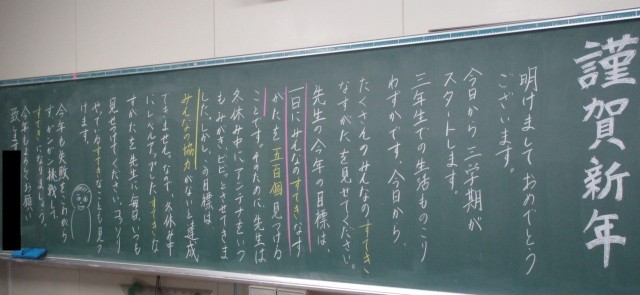 謹賀新年
明けましておめでとう
ございます。
今日から三学期が
スタートします。
三年生での生活ものこり
わずかです。今日から、
たくさんのみんなのすてき
なすがたを見せてください。
先生の今年の目標は、
一日にみんなのすてきなす
がたを五百個見つける
ことです。そのために先生は
冬休み中にアンテナをいつ
もみがき、ピピッとさせてきま
した。しかし、この目標は
みんなの協力がないと達成
できません。なので、冬休み中
にレベルアップしたすてきな
すがたを先生に毎日いつも
見せつけてください。コッソリ
やっているすてきなことも見つ
けます。
今年も失敗をこわがら
ずガンガン挑戦して、
すてきになりましょう。
今年もよろしくお願い
致します。